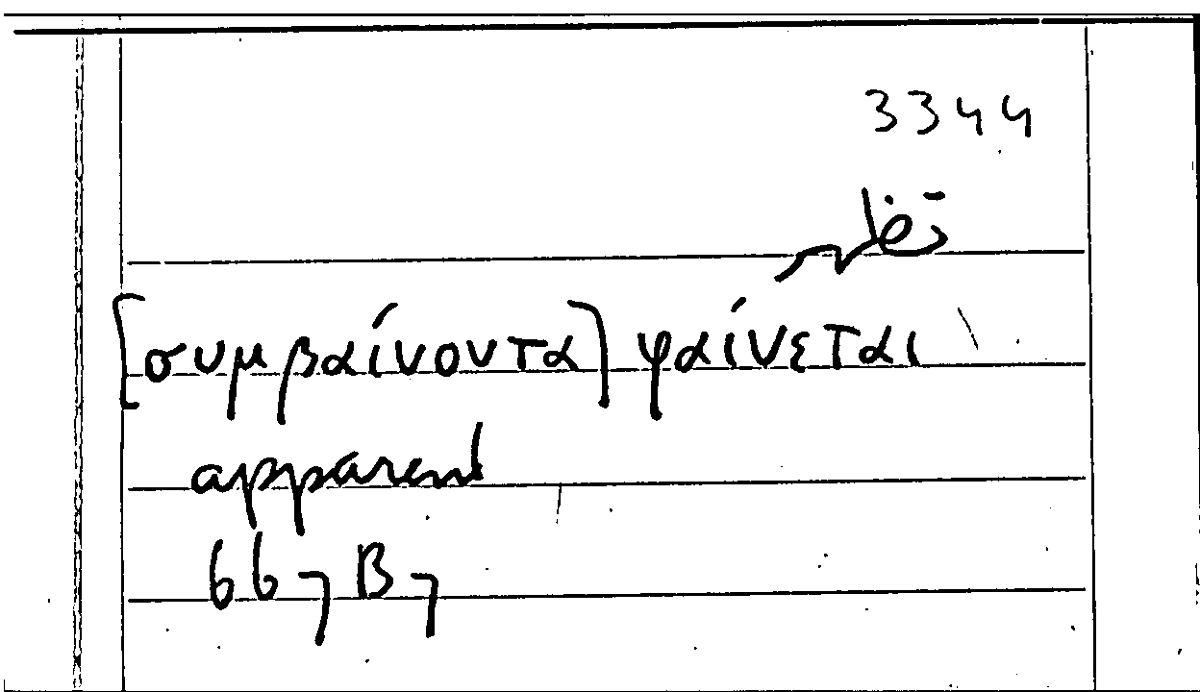 3344
[συμβαίνοντα] φαίνεται
apparent
667B7